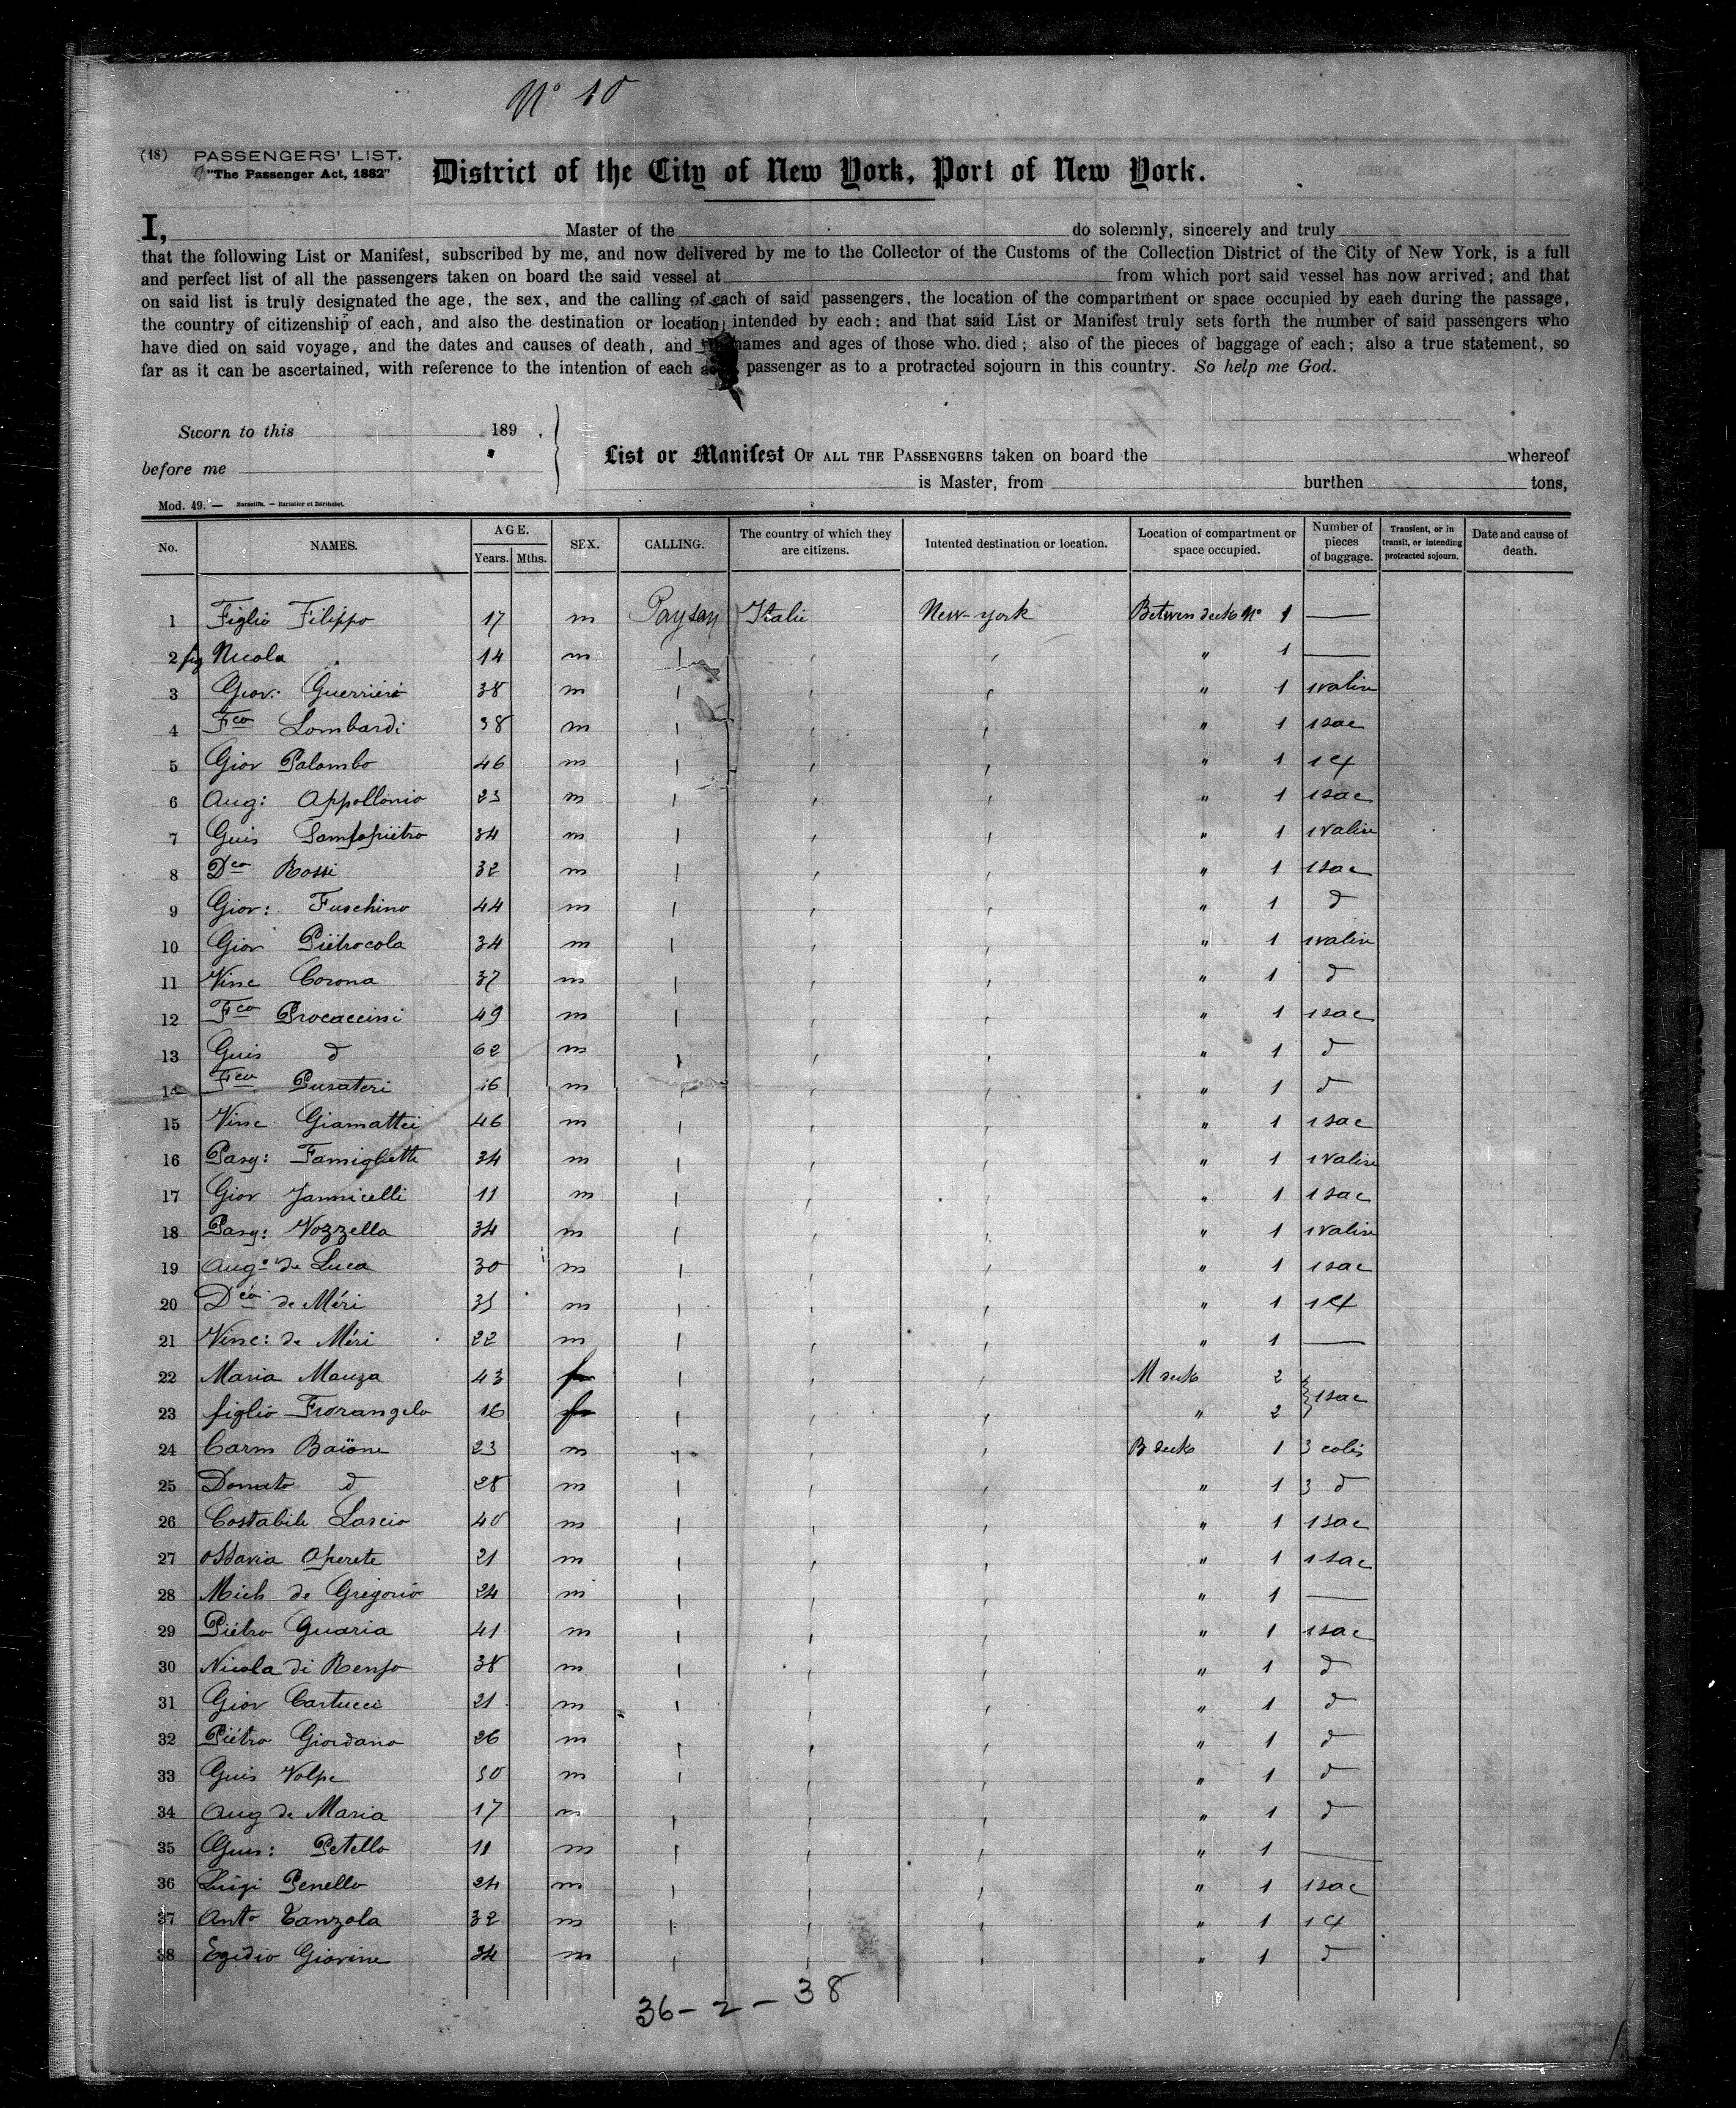 Nº 10
(18) PASSENGERS' LIST.
"The Passenger Act, 1882"
District of the City of New York, Port of New York.
I, Master of the do solemnly, sincerely and truly
that the following List or Manifest, subscribed by me, and now delivered by me to the Collector of the Customs of the Collection District of the City of New York, is a full
and perfect list of all the passengers taken on board the said vessel at from which port said vessel has now arrived; and that
on said list is truly designated the age, the sex, and the calling of each of said passengers, the location of the compartment or space occupied by each during the passage,
the country of citizenship of each, and also the destination or location intended by each: and that said List or Manifest truly sets forth the number of said passengers who
have died on said voyage, and the dates and causes of death, and names and ages of those who died; also of the pieces of baggage of each; also a true statement, so
far as it can be ascertained, with reference to the intention of each passenger as to a protracted sojourn in this country. So help me God.
Sworn to this 189 .
before me
List or Manifest OF ALL THE PASSENGERS taken on board the whereof
is Master, from burthen tons,
Mod. 49. — Marseille. — Barlatier et Barthelet.
No. NAMES. AGE. Years. Mths. SEX. CALLING. The country of which they are citizens. Intented destination or location. Location of compartment or space occupied. Number of pieces of baggage. Transient, or in transit, or intending protracted sojourn. Date and cause of death.
1 Figlio Filippo 17 m Paysan Italie New-york Betwen decks Nº 1 —
2 fig Nicola 14 m " 1 —
3 Giov: Guerrieri 38 m " 1 1 valise
4 Fco Lombardi 38 m " 1 1 sac
5 Giov Palombo 46 m " 1 1
6 Aug: Appollonio 23 m " 1 1 sac
7 Guis 34 m " 1 1 valise
8 Dco Rossi 32 m " 1 1 sac
9 Giov: Fuschino 44 m " 1 d
10 Giov Piëtrocola 34 m " 1 1 valise
11 Vinc Corona 37 m " 1 d
12 Fco Procaccini 49 m " 1 1 sac
13 Guis d 62 m " 1 d
14 Fco Pusateri 16 m " 1 d
15 Vinc Giamattei 46 m " 1 1 sac
16 Pasq: Famiglietti 34 m " 1 1 valise
17 Giov Jannicelli 11 m " 1 1 sac
18 Pasq: Nozzella 34 m " 1 1 valise
19 Augº de Luca 30 m " 1 1 sac
20 Dco de Méri 35 m " 1 1
21 Vinc: de Méri 22 m " 1 —
22 Maria Mauza 43 f M decks 2
23 figlio Fiorangelo 16 f " 2 1 sac
24 Carm Baïone 23 m B decks 1 3 colis
25 Donato d 28 m " 1 3 d
26 Costabile Lascio 40 m " 1 1 sac
27 Ottavia Aperete 21 m " 1 1 sac
28 Mich de Gregorio 24 m " 1 —
29 Piëtro Guaria 41 m " 1 1 sac
30 Nicola di Renzo 38 m " 1 d
31 Giov Cartucci 21 m " 1 d
32 Piëtro Giordano 26 m " 1 d
33 Guis Volpe 30 m " 1 d
34 Aug de Maria 17 m " 1 d
35 Guis: Petello 11 m " 1 —
36 Luigi Penello 24 m " 1 1 sac
37 Antº Tanzola 32 m " 1 1
38 Egidio Giovine 34 m " 1 d
36 - 2 - 38